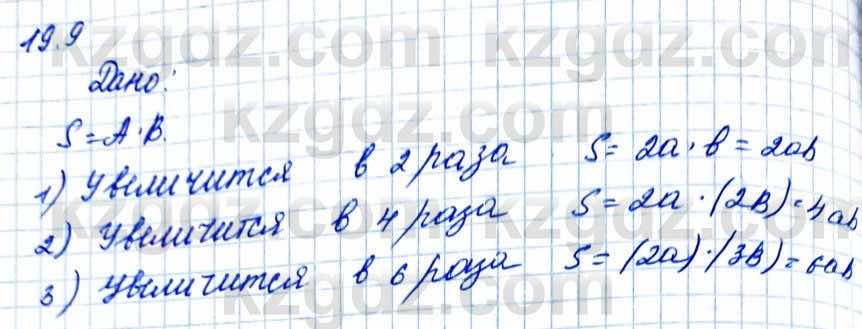 kzgdz.com kzgdz.com
19.9
Дано:
S=A·B.
kzgdz.com kzgdz.com
1) Увеличится в 2 раза S= 2a·b=2ab
2) Увеличится в 4 раза S= 2a·(2B)=4ab
3) Увеличится в 6 раза S=(2a)·(3B)=6ab
kzgdz.com kzgdz.com